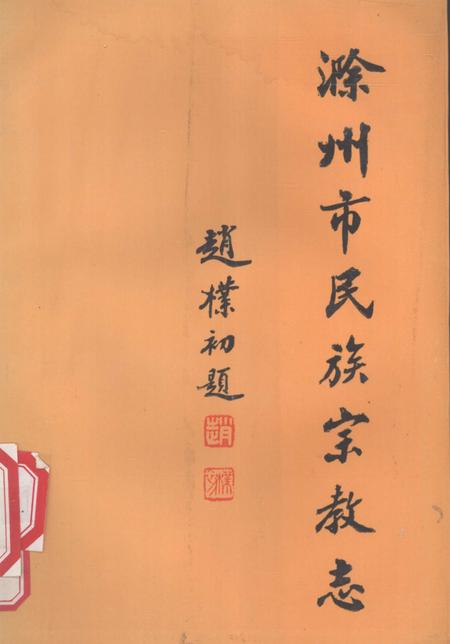 滁州市民族宗教志
趙樸初題
趙
樸初